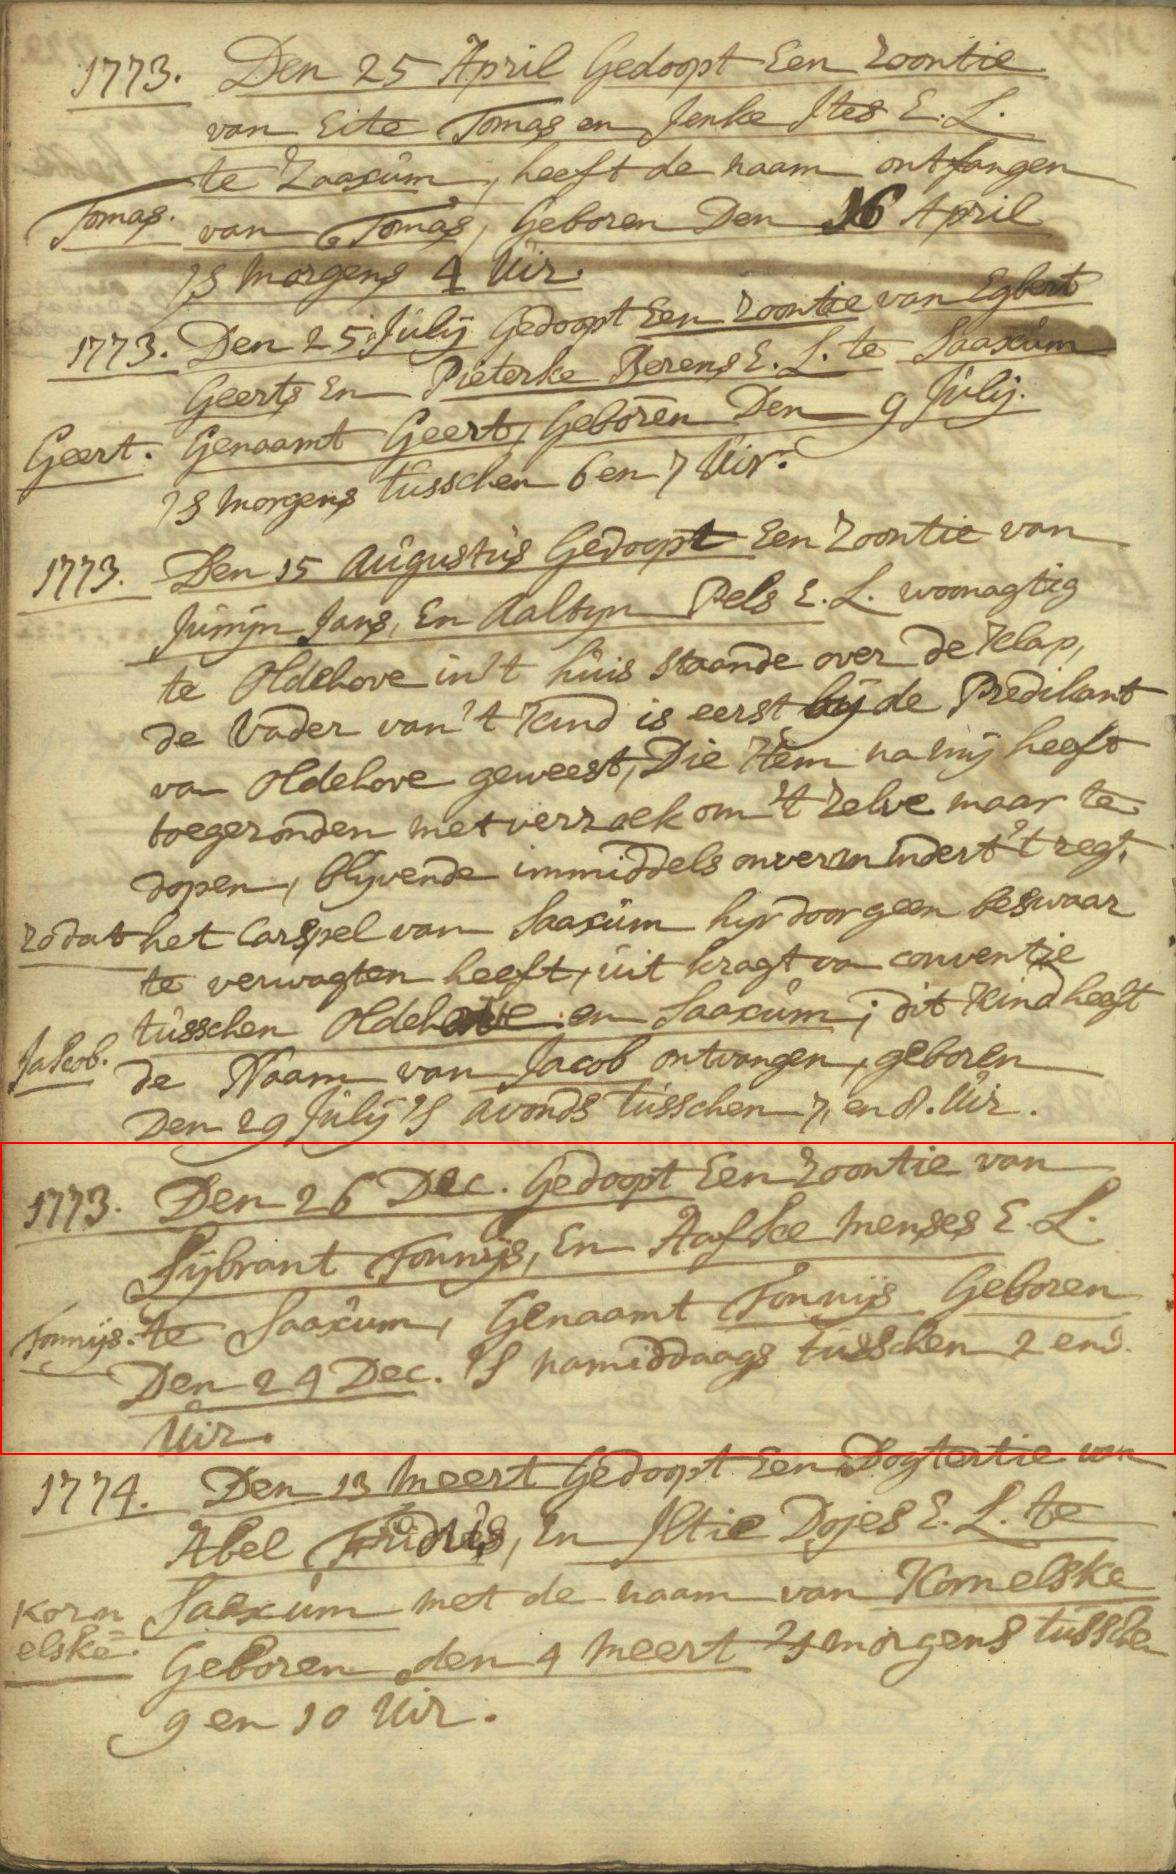 1773. Den 25 April Gedoopt Een zoontie
van Eite Tomas en Jenke Ites E. L.
te Zaaxum, heeft de naam ontfangen
Tomas. van Tomas, Geboren Den 16 April
's morgens 4 Uir.
1773. Den 25 Julij Gedoopt Een zoontie van Egbert
Geerts En Pieterke Berens E. L. te Saaxum
Geert. Genaamt Geert, Geboren Den 9 Julij.
's morgens tusschen 6 en 7 Uir.
1773. Den 15 Augustus Gedoopt Een zoontie van
Jans, En Aaltyn Pels E. L. woonagtig
te Oldehove in 't huis staande over de klap,
de Vader van 't kind is eerst bij de Predikant
van Oldehove geweest, Die Hem na mij heeft
toegezonden met verzoek om 't zelve maar te
dopen, blyvende immiddels onvermindert 't regt.
zodat het Carspel van Saaxum hyrdoor geen beswaar
te verwagten heeft, uit kragt van conventie
tusschen Oldehove en Saaxum; dit kind heeft
Jakob. de Naam van Jacob ontvangen, geboren
Den 29 Julij 's avonds tusschen 7, en 8. Uir.
1773. Den 26 Dec. Gedoopt Een zoontie van
Sijbrant Tonnijs, En Aafke Menses E. L.
Tonnijs. te Saaxum, Genaamt Tonnijs Geboren
Den 24 Dec. 's namiddaags tusschen 2 en 3.
Uir.
1774. Den 13 Meert Gedoopt Een Dogtertie van
Abel, En Iltie Dojes E. L. te
Korn Saaxum met de naam van Kornelske
elske. Geboren den 4 Meert 's morgens tussche
9 en 10 Uir.